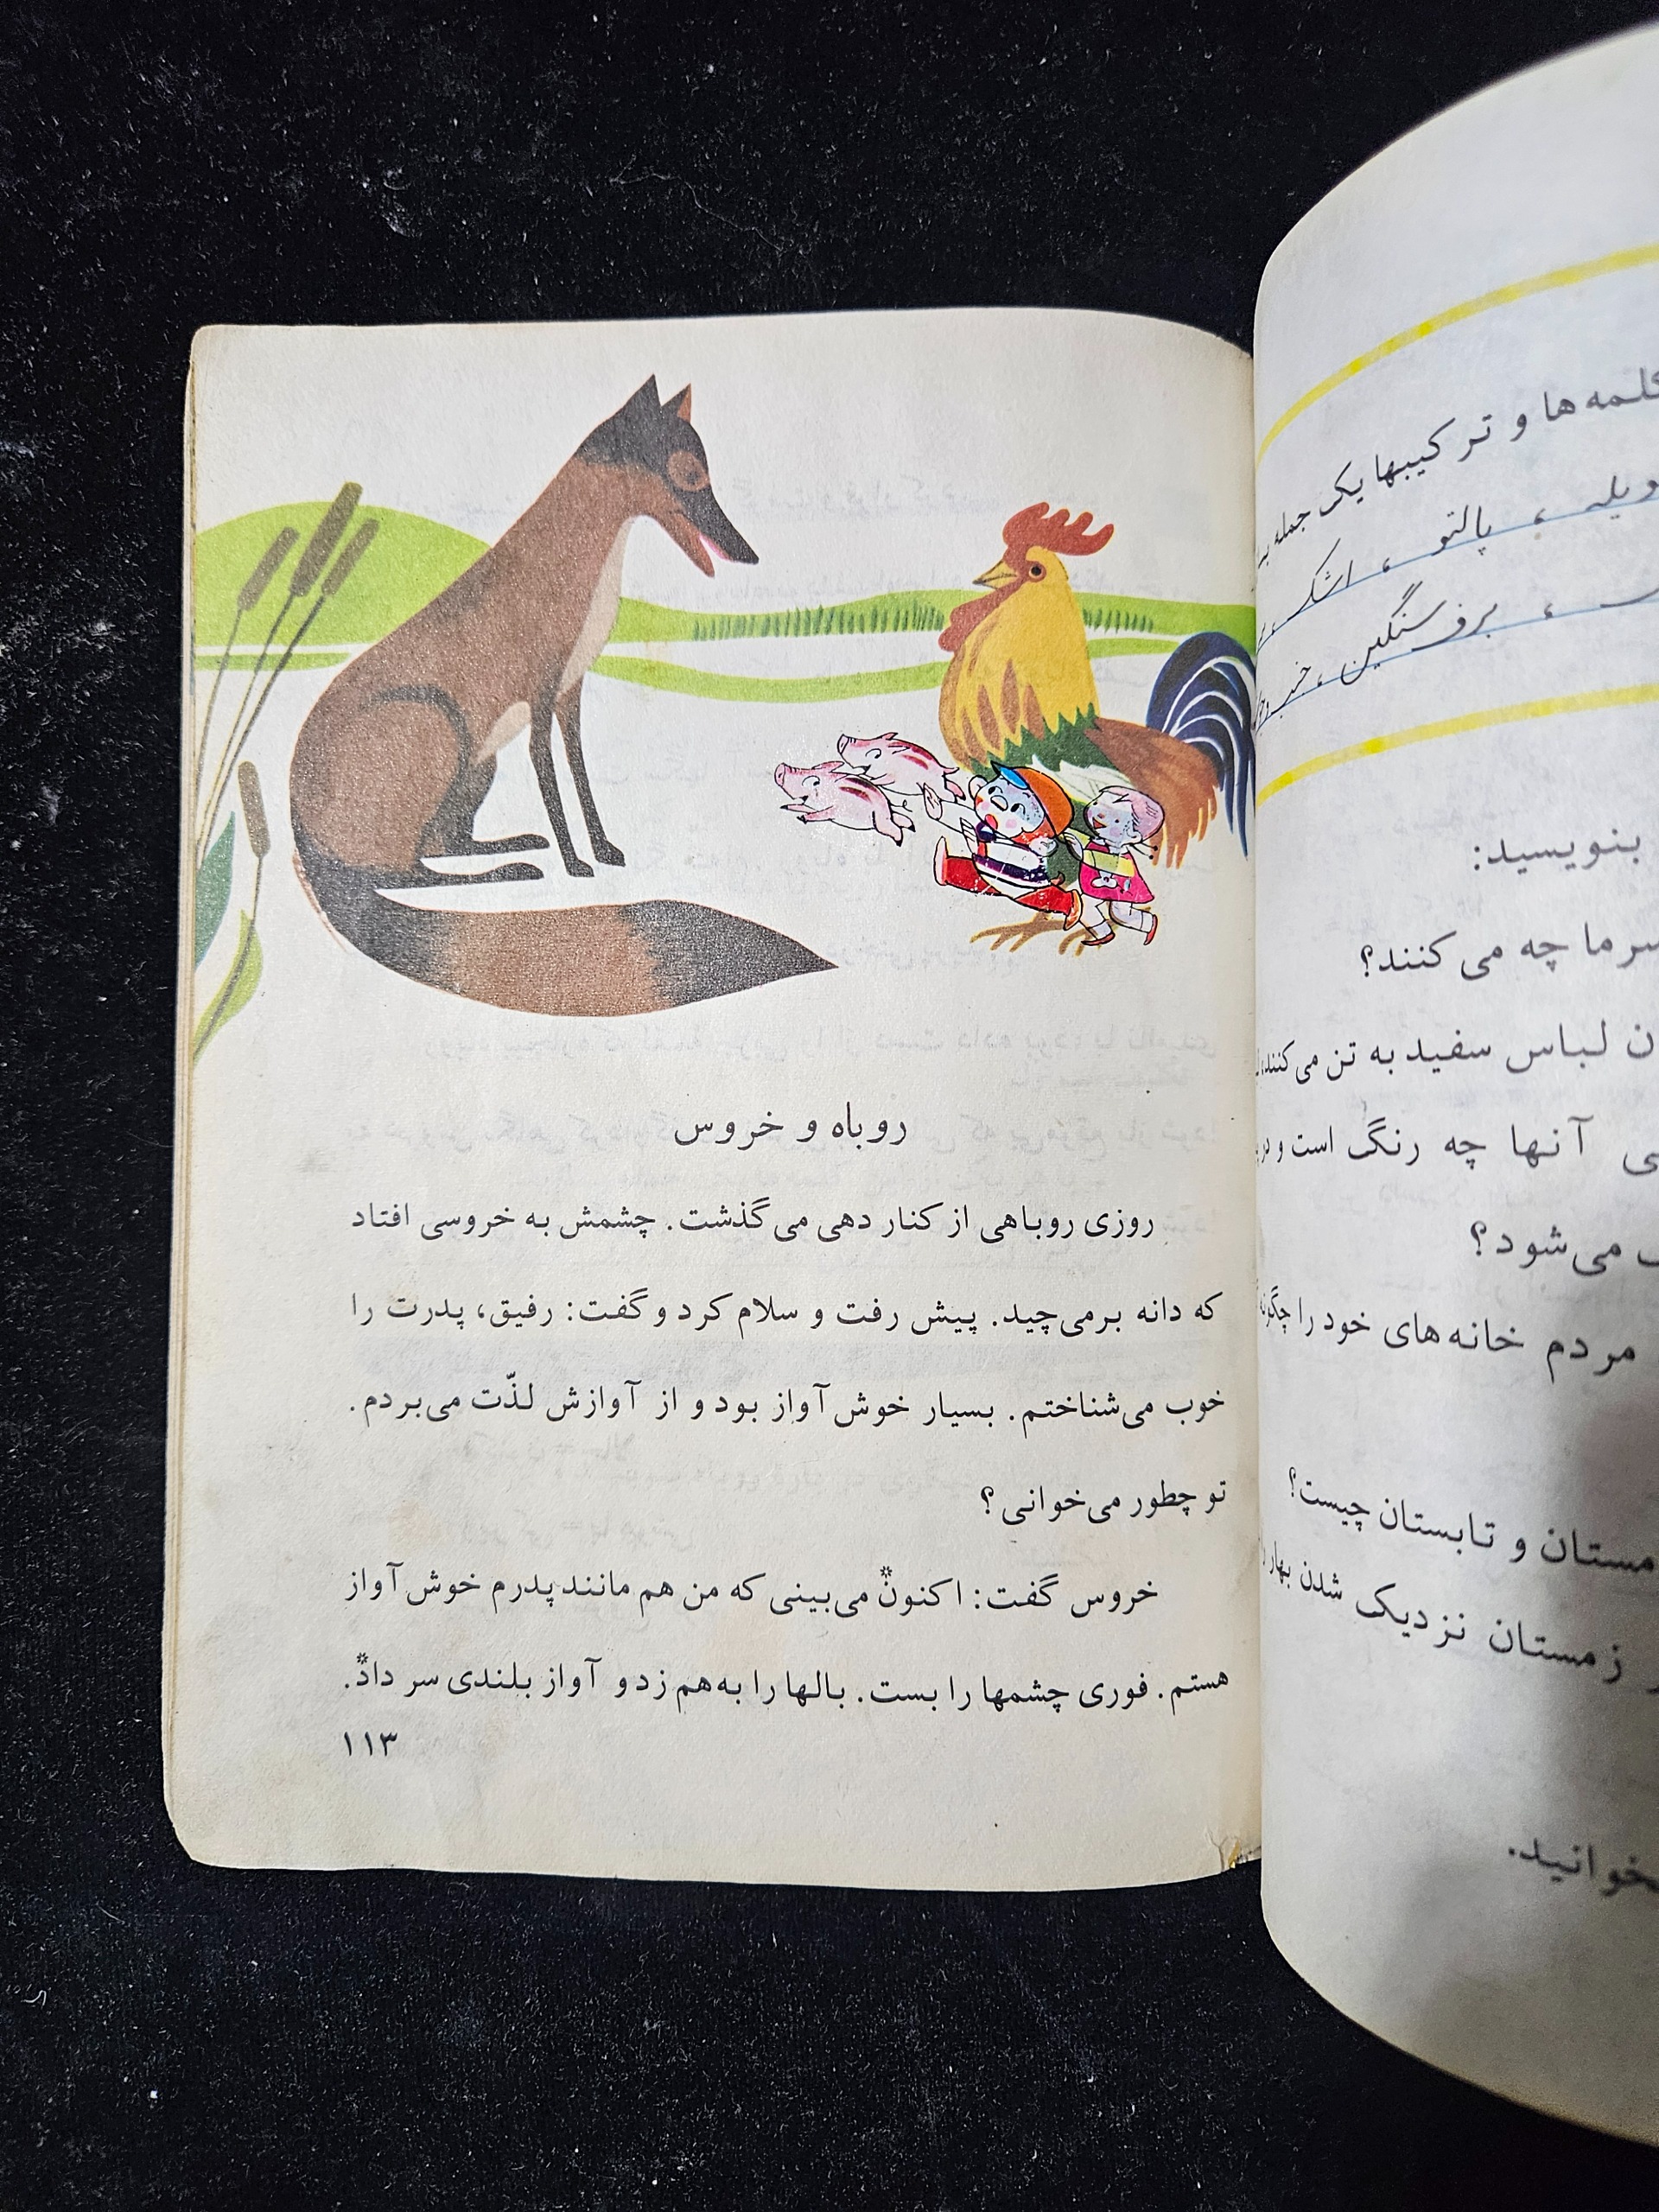 کلمه‌ها و ترکیبها یک جمله
، پالتو ، اشک ،
، برف سنگین ، خبر
بنویسید:
سرما چه می‌کنند؟
لباس سفید به تن می‌کنند،
آنها چه رنگ است و در
می‌شود؟
مردم خانه‌های خود را چگونه
و تابستان چیست؟
زمستان نزدیک شدن بهار
روباه و خروس
روزی روباهی از کنار دهی می‌گذشت. چشمش به خروسی افتاد
که دانه برمی‌چید. پیش رفت و سلام کرد و گفت: رفیق، پدرت را
خوب می‌شناختم. بسیار خوش آواز بود و از آوازش لذّت می‌بردم.
تو چطور می‌خوانی؟
خروس گفت: اکنون* می‌بینی که من هم مانند پدرم خوش آواز
هستم. فوری چشمها را بست. بالها را به‌هم زد و آواز بلندی سر داد*.
۱۱۳